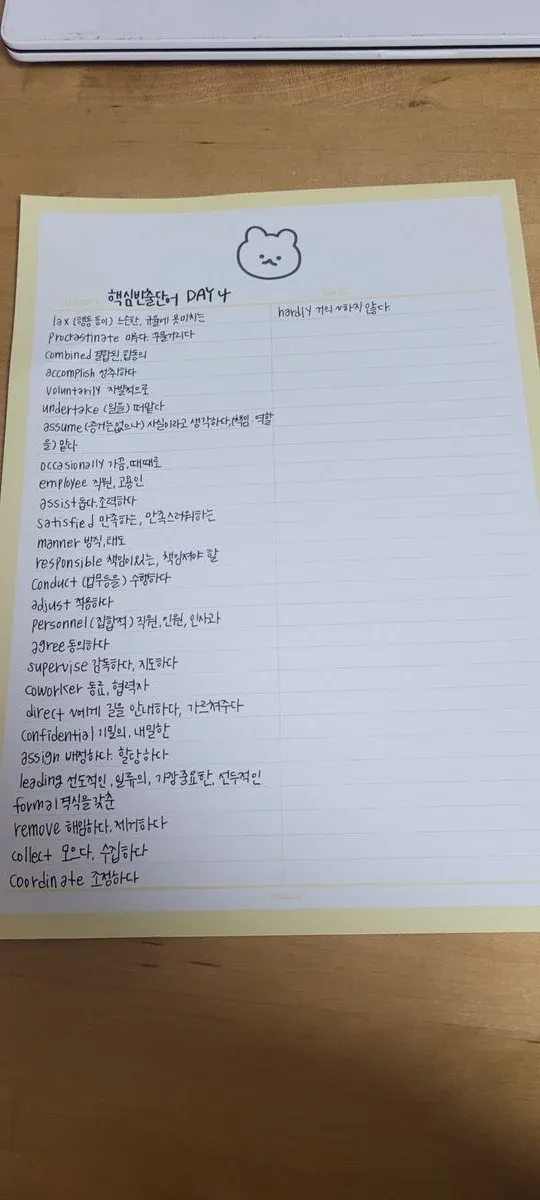 핵심빈출단어 DAY 4
lax (행동 등이) 느슨한, 규율에 못미치는
procrastinate 미루다. 꾸물거리다
combined 결합된, 합동의
accomplish 성취하다
voluntarily 자발적으로
undertake (일을) 떠맡다
assume (증거는없으나) 사실이라고 생각하다, (책임·역할
을) 맡다
occasionally 가끔, 때때로
employee 직원, 고용인
assist 돕다. 조력하다
satisfied 만족하는, 만족스러워하는
manner 방식, 태도
responsible 책임이있는, 책임져야 할
conduct (업무등을) 수행하다
adjust 적응하다
personnel (집합적) 직원, 인원, 인사과
agree 동의하다
supervise 감독하다, 지도하다
coworker 동료, 협력자
direct ~에게 길을 안내하다, 가르쳐주다
confidential 기밀의, 내밀한
assign 배정하다. 할당하다
leading 선도적인, 일류의, 가장중요한, 선두적인
formal 격식을갖춘
remove 해임하다. 제거하다
collect 모으다. 수집하다
coordinate 조정하다
hardly 거의 ~하지 않다.